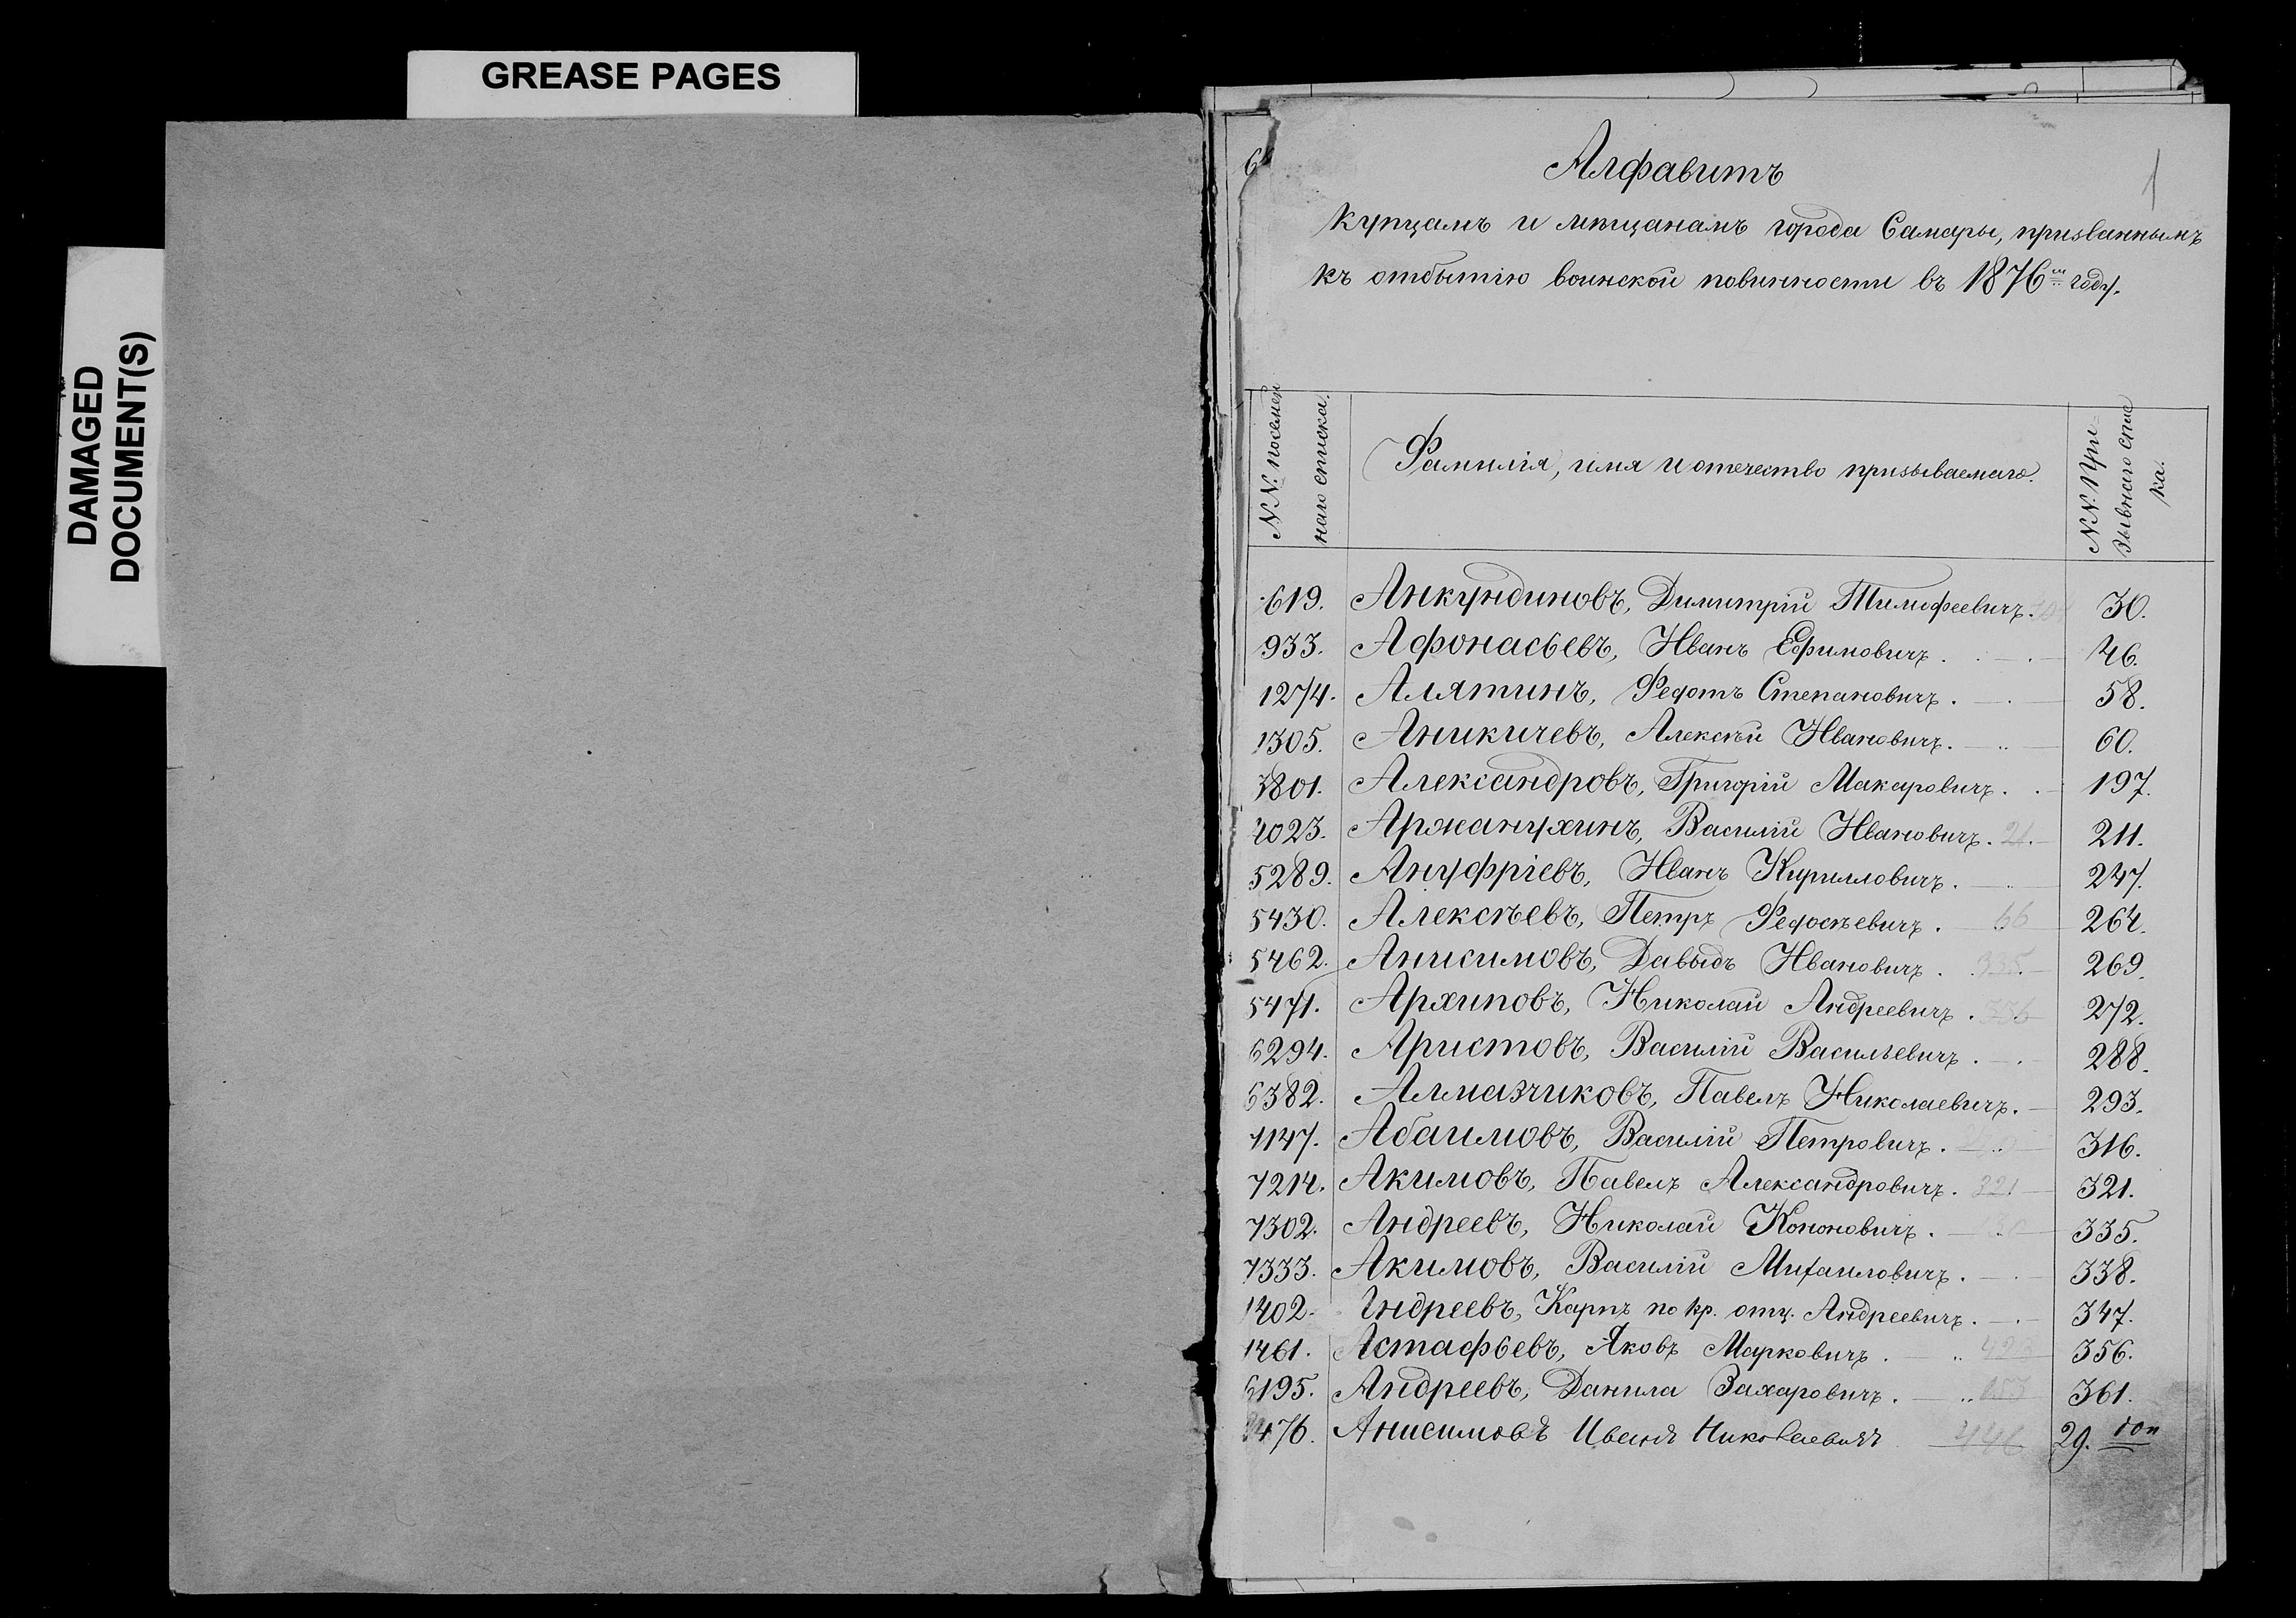 GREASE PAGES
DAMAGED
DOCUMENT(S)
1
Алфавитъ
купцамъ и мѣщанамъ города Самары, призваннымъ
къ отбытію воинской повинности въ 1876 м году.
N.N. посемей
наго списка.
Фамилія, имя и отечество призываемаго.
N.N. При
зывнаго спис
ка.
619. Анкундиновъ, Димитрій Тимофеевичъ. 30.
933. Афонасьевъ, Иванъ Ефимовичъ. 46.
1274. Алятинъ, Федотъ Степановичъ. 58.
1305. Аникичевъ, Алексѣй Ивановичъ. 60.
3801. Александровъ, Григорій Макаровичъ. 197.
4023. Аржанухинъ, Василій Ивановичъ. 21. 211.
5289. Ануфріевъ, Иванъ Кирилловичъ. 247.
5430. Алексѣевъ, Петръ Федосѣевичъ. 66 264.
5462. Анисимовъ, Давыдъ Ивановичъ. 269.
5471. Архиповъ, Николай Андреевичъ. 272.
6294. Аристовъ, Василій Васильевичъ. 288.
6382. Алмазчиковъ, Павелъ Николаевичъ. 293.
7147. Абаимовъ, Василій Петровичъ. 316.
7214. Акимовъ, Павелъ Александровичъ. 321 321.
7302. Андреевъ, Николай Кононовичъ. 335.
7333. Акимовъ, Василій Михаиловичъ. 338.
7402. Андреевъ, Карпъ по кр. отц. Андреевичъ. 347.
7461. Астафьевъ, Яковъ Марковичъ. 356.
6195. Андреевъ, Данила Захаровичъ. 361.
476. Анисимовъ Иванъ Николаевичъ 446 29. доп